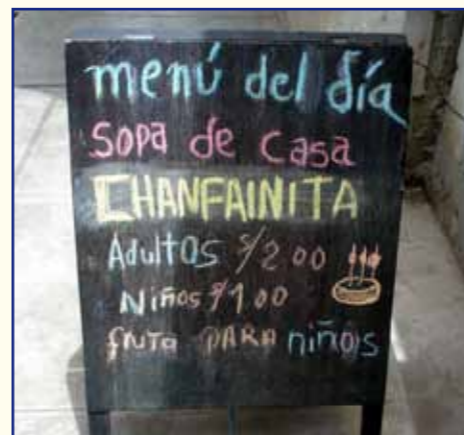 menú del día
Sopa de casa
CHANFAINITA
AdultOS S/2.00
Niños S/1.00
fruta PARA niños